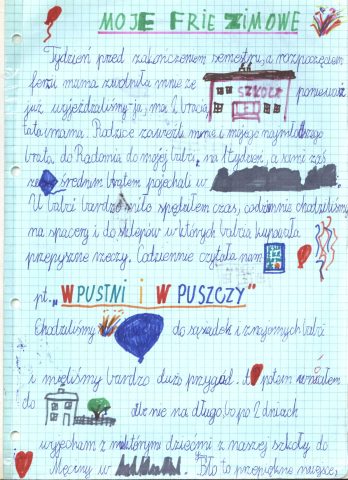 MOJE FRIE ZIMOWE
Tydzień przed zakończeniem semestru, a rozpoczęciem
ferii mama zwolniła mnie ze SZKOŁA ponieważ
już wyjeżdżaliśmy - ja, ma 2 braci,
tata i mama. Rodzice zawieźli mnie i mojego najmłodszego
brata, do Radomia do mojej babci, na 1 tydzień, a sami zaś
ze średnim bratem pojechali w
U babci bardzo miło spędziłem czas, codziennie chodziliśmy
na spacery i do sklepów w których babcia kupowała
przepyszne rzeczy. Codziennie czytała nam
pt. „W PUSTNI I W PUSZCZY"
Chodziliśmy do sąsiadek i znajomych babci
i mieliśmy bardzo dużo przygód. A potem wróciłem
do ale nie na długo, bo po 2 dniach
wyjechałem z niektórymi dziećmi z naszej szkoły do
Męciny w Było to przepiękne miejsce,